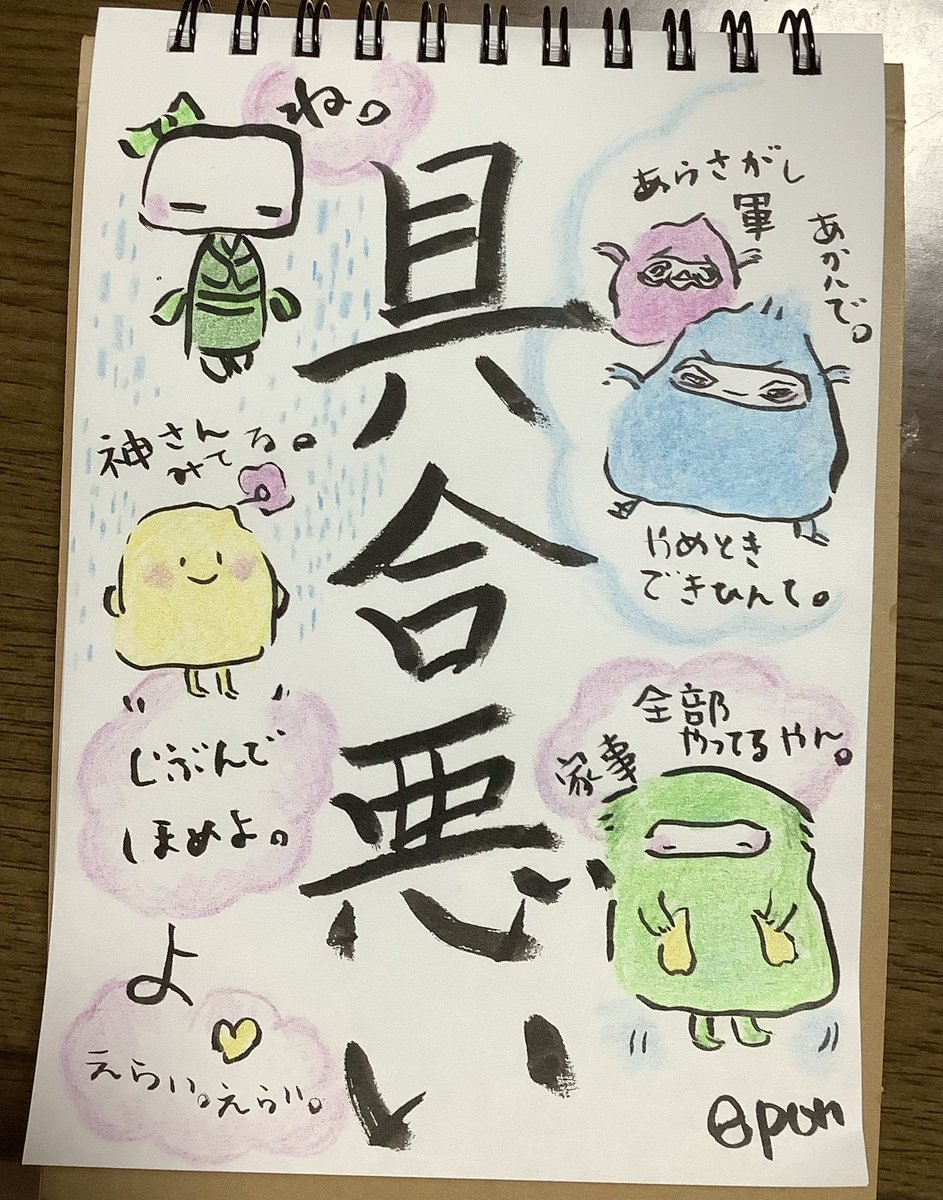 具合悪い
ね。
あらさがし
軍
あかんで。
やめとき
できひんて。
神さん
みてる。
じぶんで
ほめよ。
よ
えらい。えらい。
家事
全部
やってるやん。